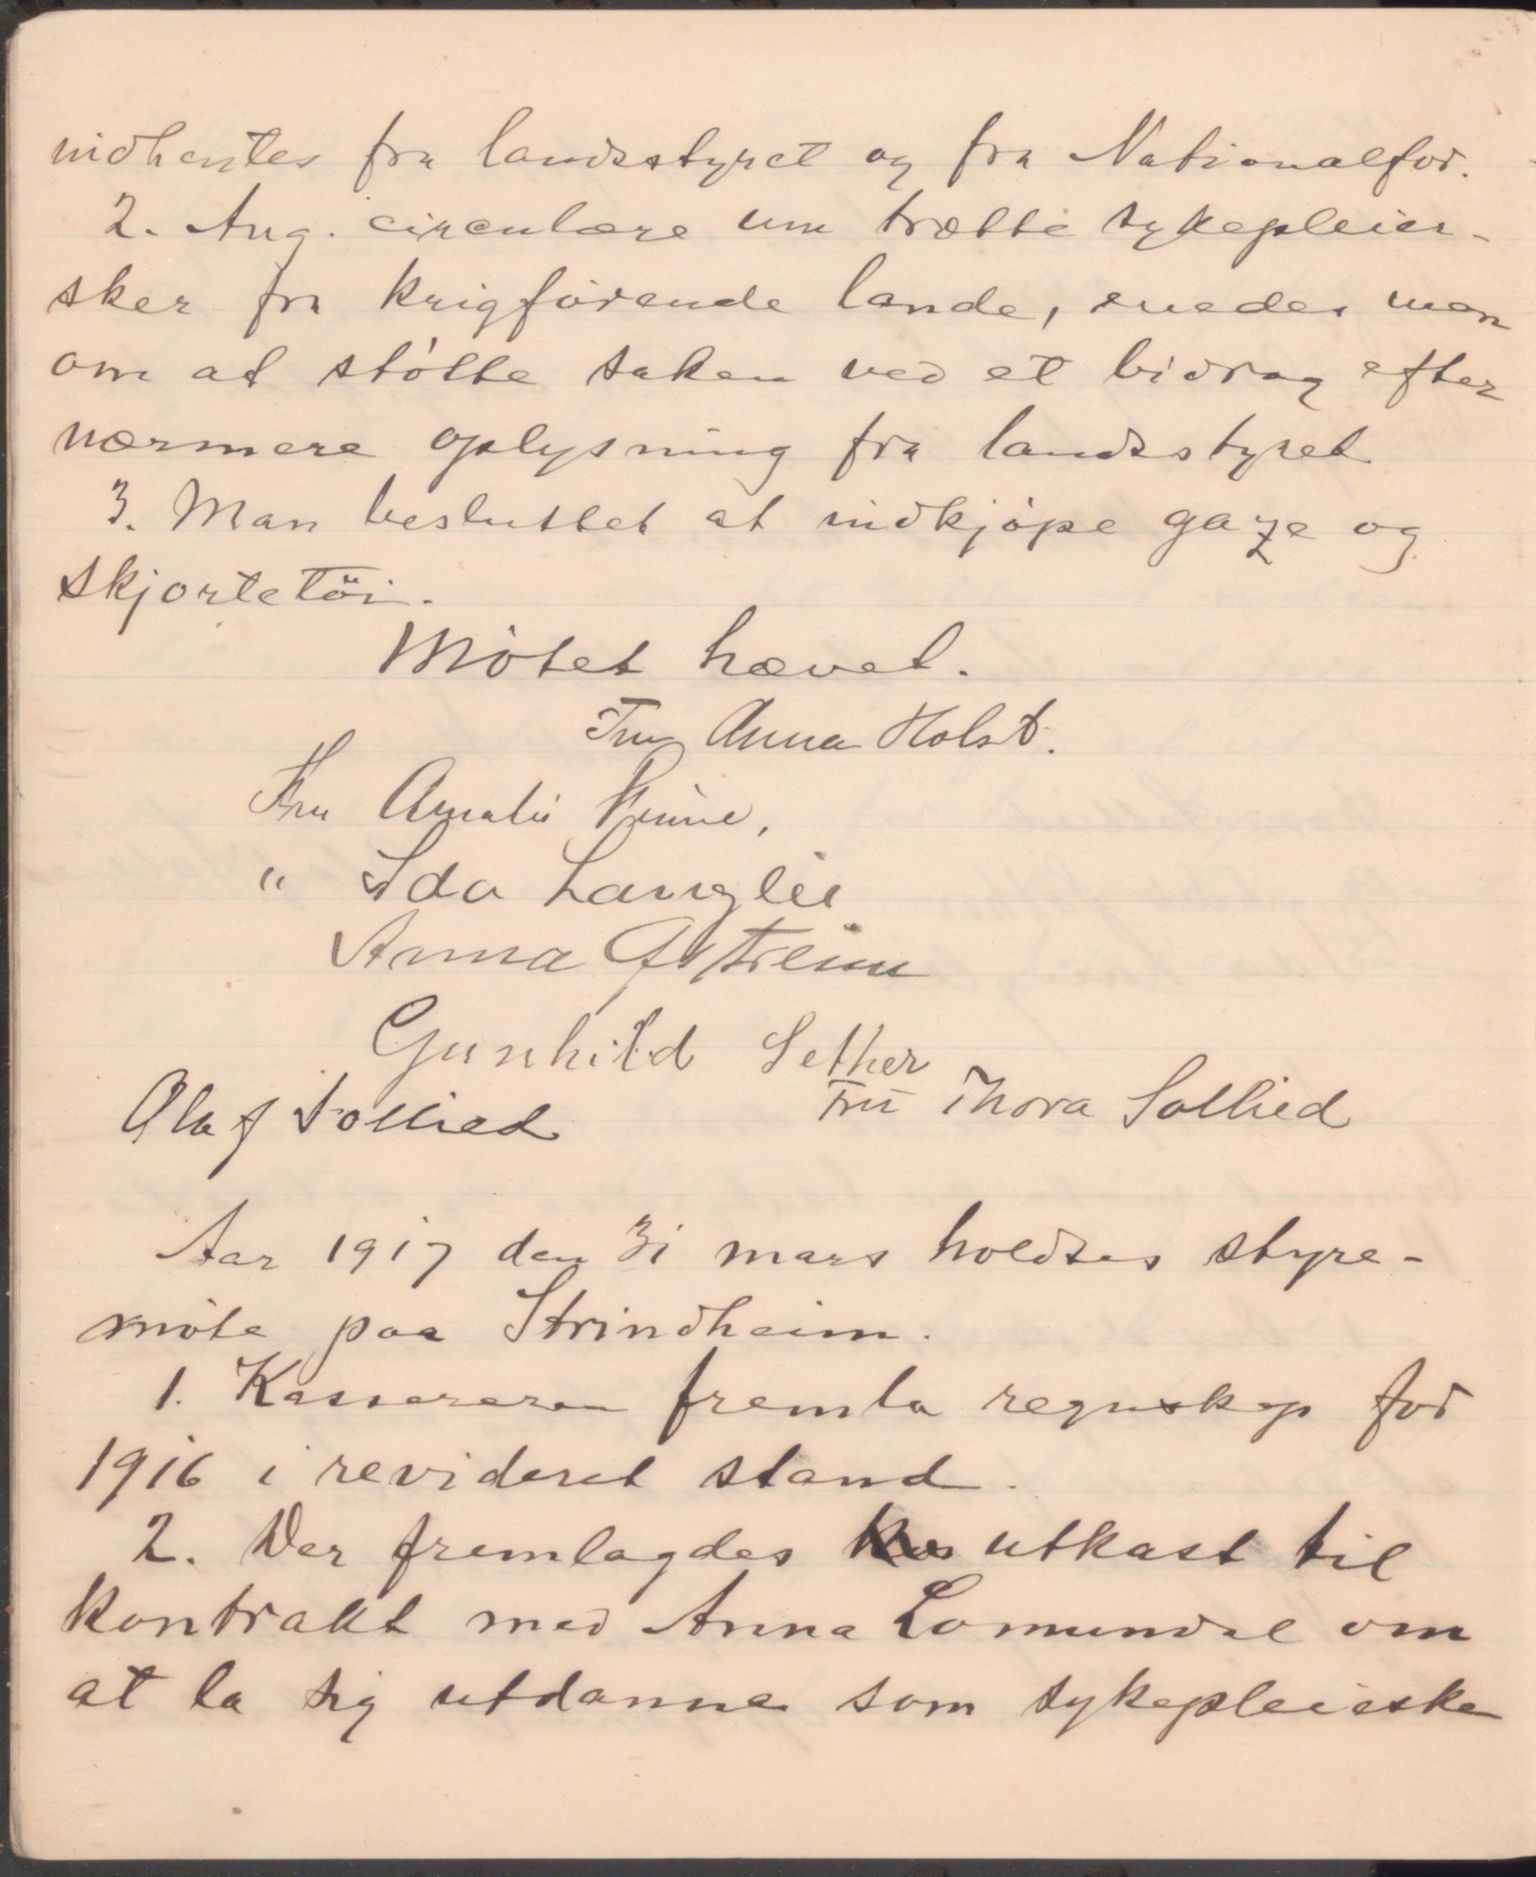 indhentes fra landsstyret og fra Nationalfor.
2. Ang. circulære om trætte sykepleier-
sker fra krigförende lande, enedes man
om at støtte saken ved et bidrag efter
nærmere oplysning fra landsstyret
3. Man besluttet at indkjøpe gaze og
skjortetöi.
Møtet hævet.
Fru Anna Holst.
Fru Amalie
" Ida Langlie
Anna
Gunhild Sether
Fru Thora Sollied
Olaf Sollied
Aar 1917 den 31 mars holdtes styre-
møte paa Strindheim.
1. Kassereren fremla regnskap for
1916 i revideret stand.
2. Der fremlagdes utkast til
kontrakt med Anna Lomundal om
at la sig utdanne som sykepleieske